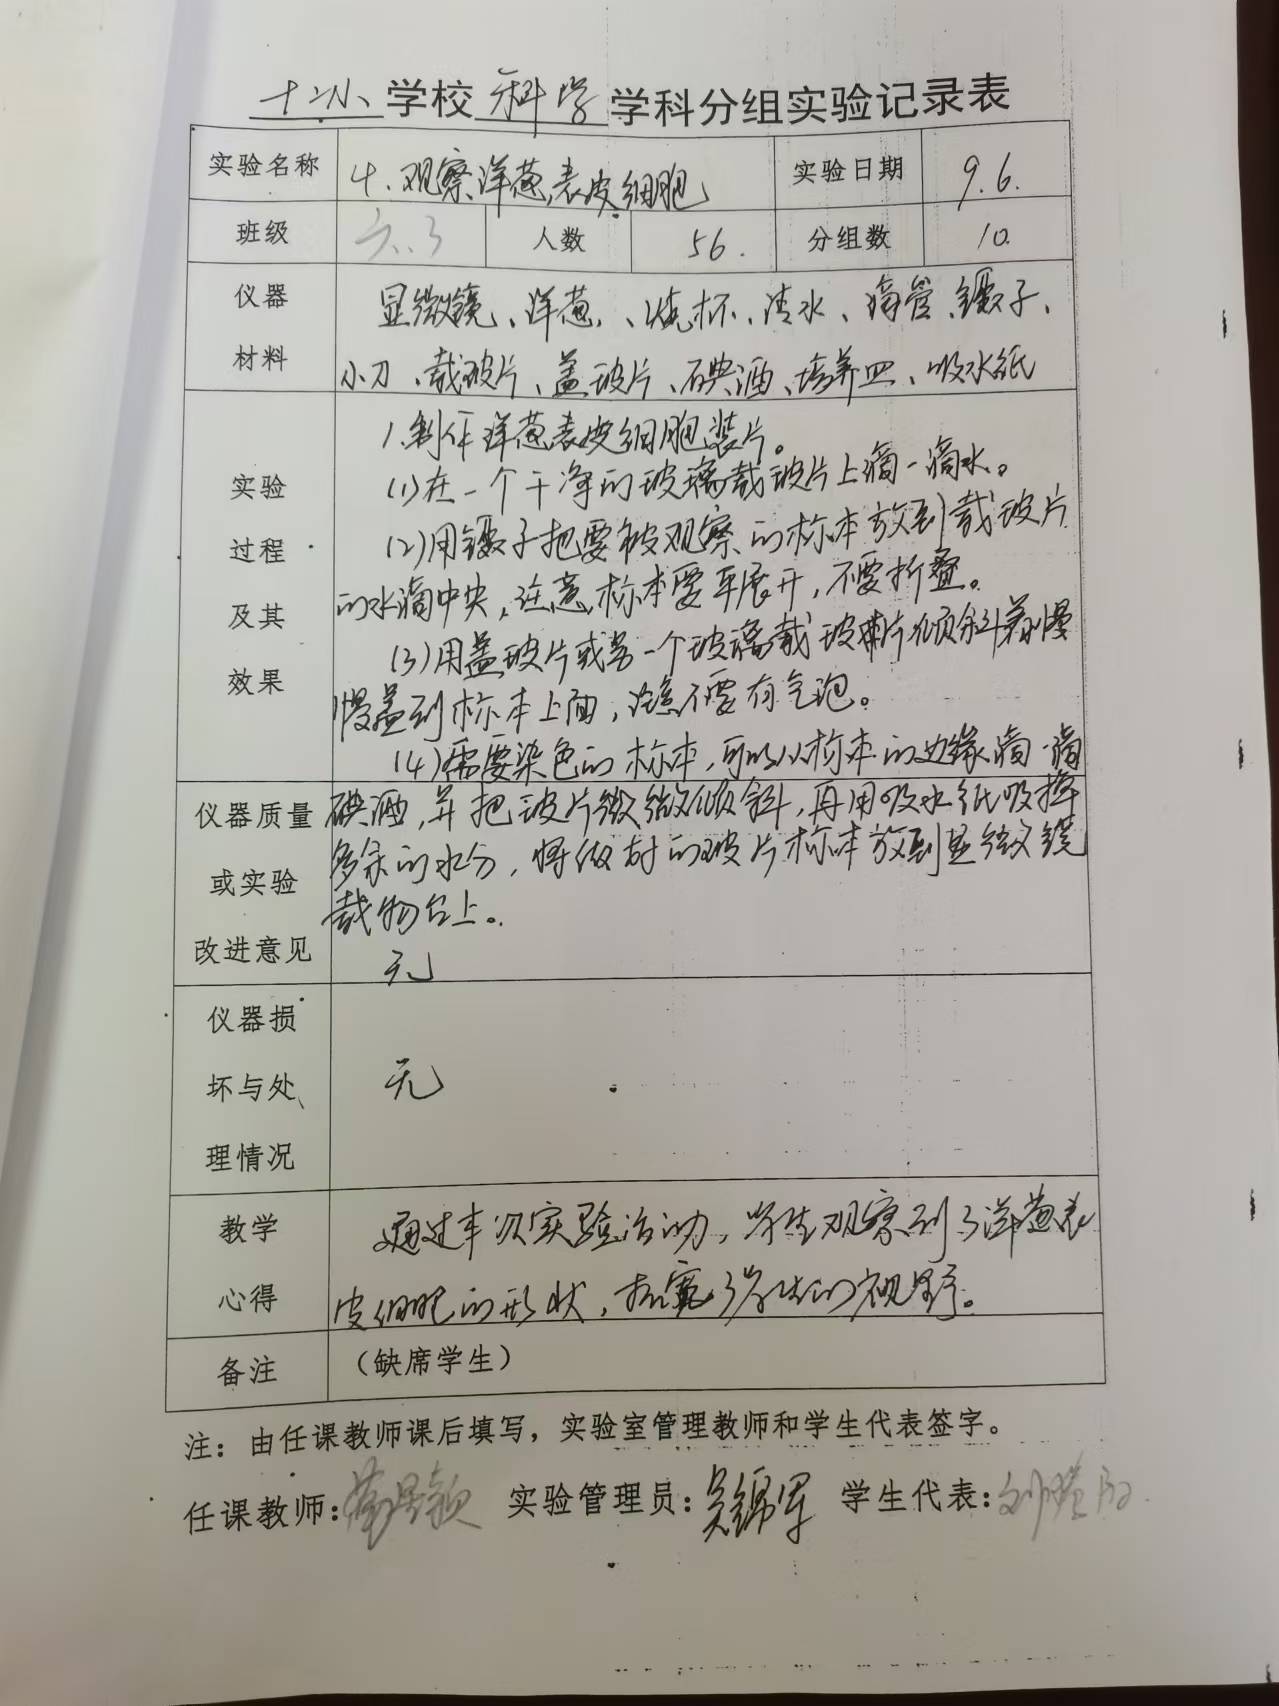 十二小学校科学学科分组实验记录表
实验名称 4.观察洋葱表皮细胞 实验日期 9.6.
班级 六.3 人数 56. 分组数 10.
仪器 显微镜、洋葱、、烧杯、清水、滴管、镊子、
材料 小刀、载玻片、盖玻片、碘酒、培养皿、吸水纸
1.制作洋葱表皮细胞装片。
实验 (1)在一个干净的玻璃载玻片上滴一滴水。
过程 (2)用镊子把要被观察的标本放到载玻片
的水滴中央,注意标本要平展开,不要折叠。
及其 (3)用盖玻片或另一个玻璃载玻片倾斜着慢
效果 慢盖到标本上面,注意不要有气泡。
(4)需要染色的标本,可以从标本的边缘滴一滴
仪器质量 碘酒,并把玻片微微倾斜,再用吸水纸吸掉
或实验 多余的水分,将做好的玻片标本放到显微镜
载物台上。
改进意见 无
仪器损
坏与处 无
理情况
教学 通过本次实验活动,学生观察到了洋葱表
心得 皮细胞的形状,拓宽了学生的视野。
备注 (缺席学生)
注:由任课教师课后填写,实验室管理教师和学生代表签字。
任课教师: 实验管理员:吴锦军 学生代表: